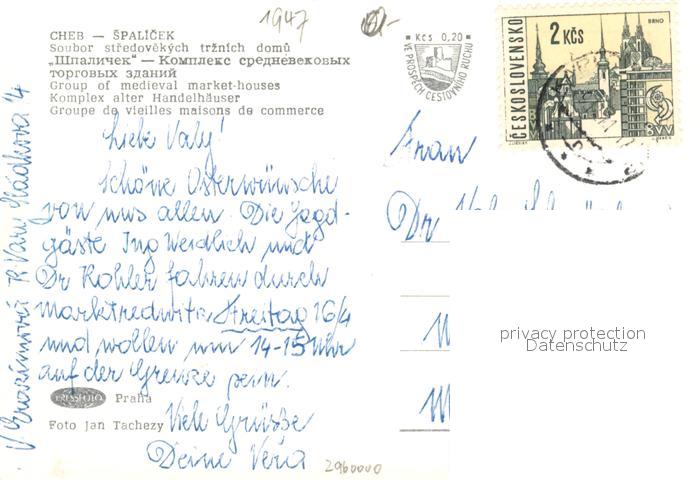 1947
CHEB — ŠPALÍČEK
Soubor středověkých tržních domů
„Шпаличек“ — Комплекс средневековых
торговых зданий
Group of medieval market-houses
Komplex alter Handelhäuser
Groupe de vieilles maisons de commerce
Kčs 0,20
VE PROSPĚCH CESTOVNÍHO RUCHU
ČESKOSLOVENSKO
2 KČS
BRNO
BVV
Liebe Valy!
Schöne Osterwünsche
von uns allen. Die Jagd-
gäste Ing Weidlich und
Dr Kohler fahren durch
Marktredwitz, Freitag 16/4
und wollen um 14-15 Uhr
auf der Grenze sein.
Viele Grüsse
Deine Věra
PRESSFOTO Praha
Foto Jan Tachezy
2960000
Frau
Dr
privacy protection
Datenschutz